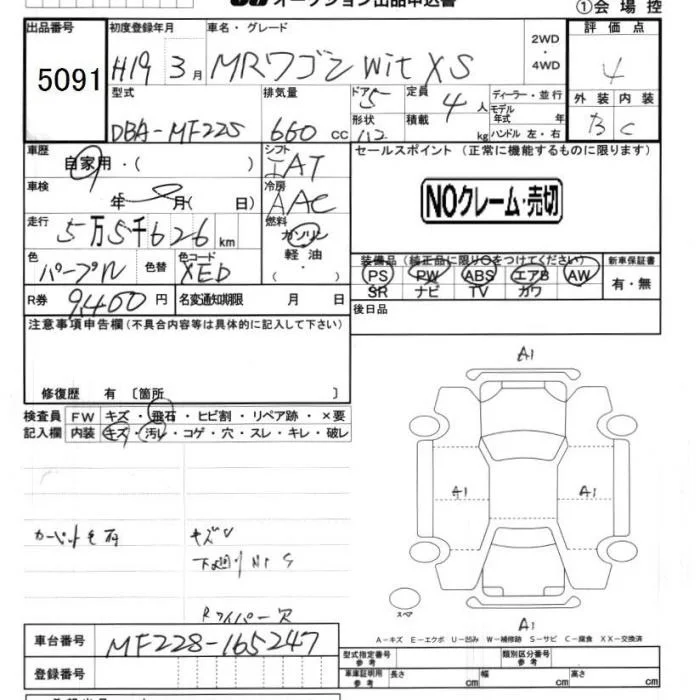 オークション出品申込書
①会場控
出品番号 5091
初度登録年月 H19 3月
車名・グレード MRワゴン wit XS
2WD・4WD
評価点 4
型式 DBA-MF22S
排気量 660 cc
ドア 5
形状
定員 4人
積載 kg
ディーラー・並行
モデル年式 年
ハンドル 左・右
外装 B
内装 C
車歴 自家用・( )
シフト
セールスポイント (正常に機能するものに限ります)
車検 年 月( 日)
冷房 AAC
NOクレーム・売切
走行 5万5千626km
燃料 ガソリン・軽油・( )
色 パープル
色替
色コード
装備品(純正品に限り○をつけてください)
PS PW ABS エアB AW
SR ナビ TV カワ
新車保証書 有・無
R券 9,460円
名変通知期限 月 日
後日品
注意事項申告欄(不具合内容等は具体的に記入して下さい)
修復歴 有 〔箇所 〕
検査員記入欄
FW キズ・飛石・ヒビ割・リペア跡・×要
内装 キズ・汚レ・コゲ・穴・スレ・キレ・破レ
キズ
Rワイパー欠
A1
A1
A1
A1
スペア
A-キズ E-エクボ U-凹み W-補修跡 S-サビ C-腐食 XX-交換済
車台番号 MF22S-165247
登録番号
型式指定番号 参考
類別区分番号 参考
車庫証明用 参考 長さ cm 幅 cm 高さ cm